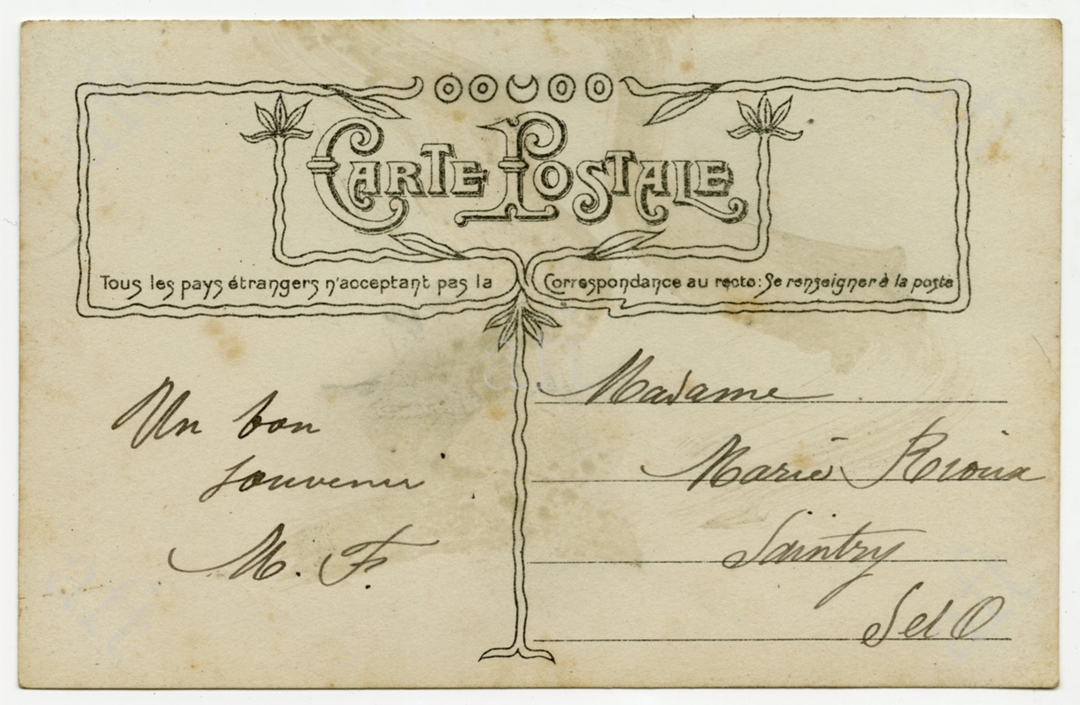 CARTE POSTALE
Tous les pays étrangers n'acceptant pas la Correspondance au recto: Se renseigner à la poste
Un bon
souvenir
M. F.
Madame
Marie Rioux
Saintry
S et O